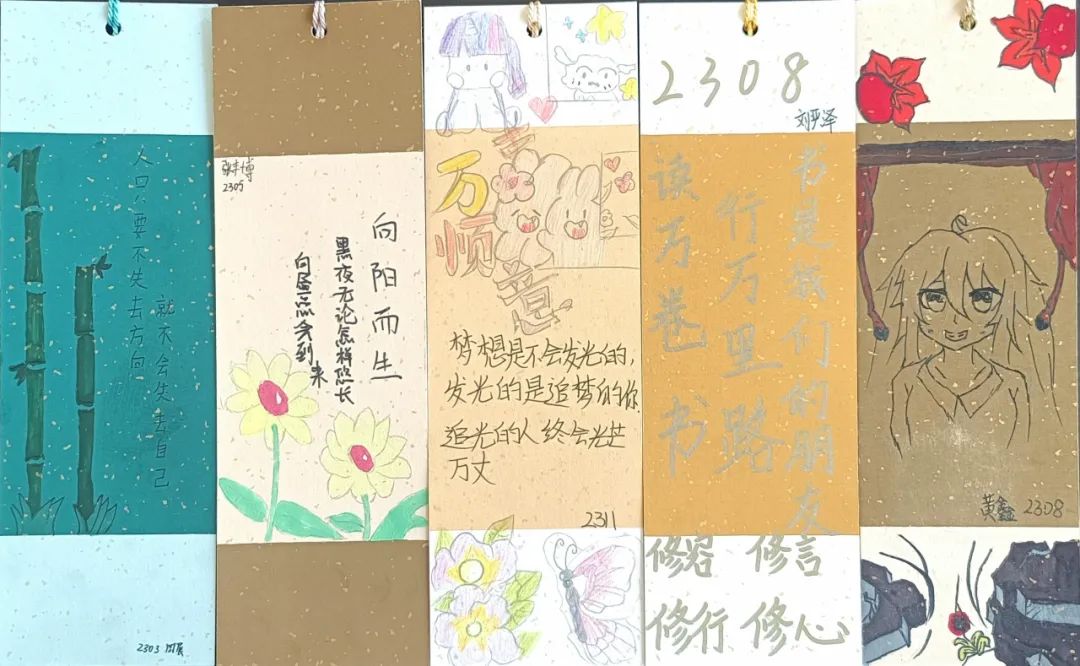 人只要不失去方向
就不会失去自己
2303
2305
向阳而生
黑夜无论怎样悠长
白昼总会到来
万事
顺意
梦想是不会发光的，
发光的是追梦的你
追光的人终会光芒
万丈
2311
2308
刘严泽
书是我们的朋友
行万里路
读万卷书
修容 修言
修行 修心
黄鑫 2308